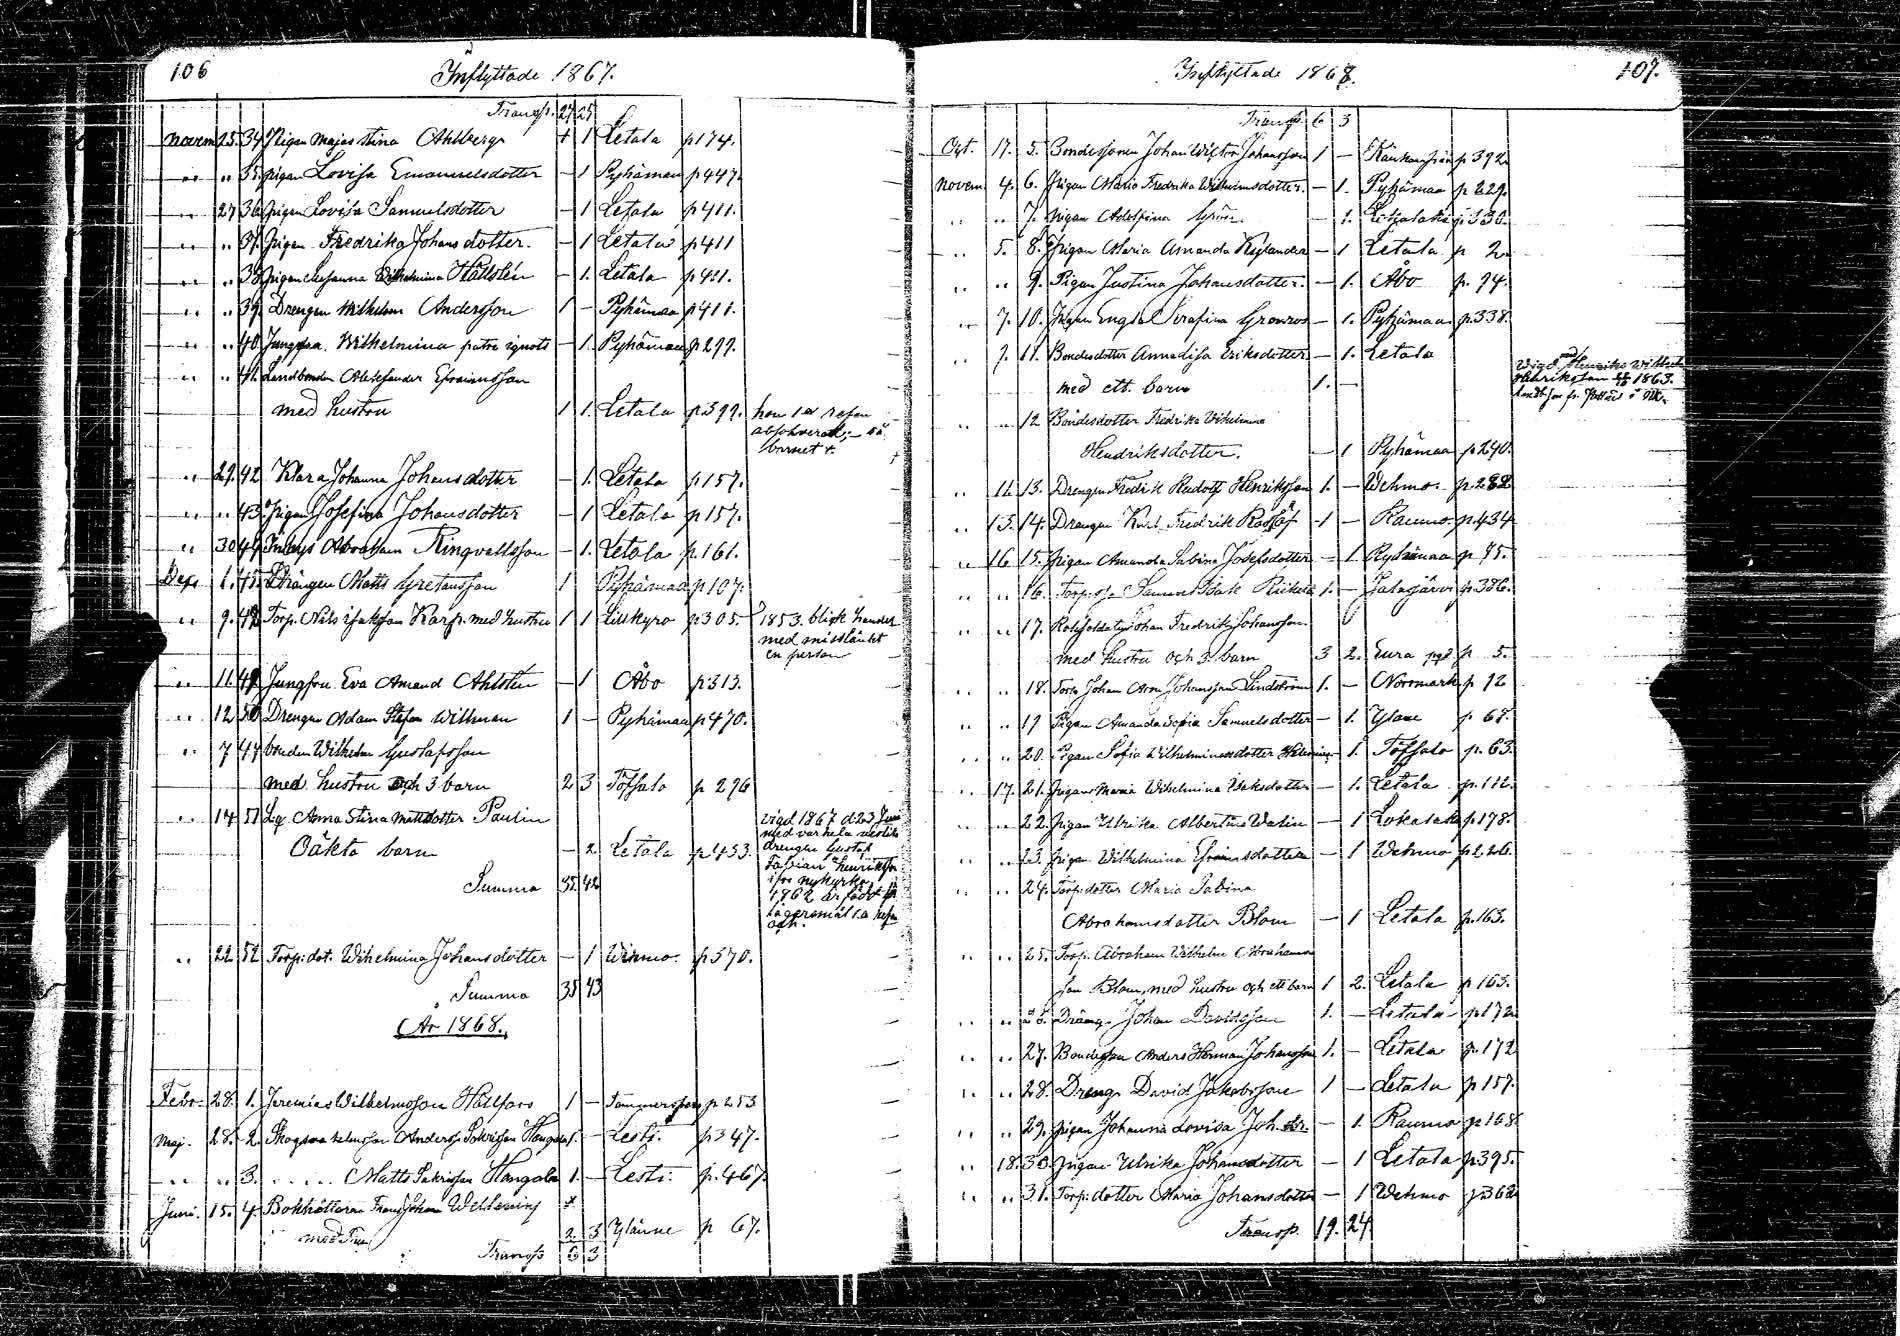 106
Inflyttade 1867.
Transp. 27 25
Novem 25. 34 Pigan Majastina Ahlberg + 1 Letala p 174.
" " 35. pigan Lovisa Emanuelsdotter - 1 Pyhämaa p 447.
" 27 36 pigan Lovisa Samuelsdotter - 1 Letala p 411.
" " 37. pigan Fredrika Johansdotter. - 1 Letala p 411
" " 38 pigan Susanna Wilhelmina Hallstén - 1. Letala p 411.
" " 39. Drengen Wilhelm Andersson 1 - Pyhämaa p 411.
" " 40 Jungfru Wilhelmina patre ignoti - 1. Pyhämaa p 297.
" " 41. Landbonden Alexander Efraimsson
med hustru 1 1. Letala p 399. hon 1 a resan
absolverad;
barnet +.
" 29. 42 Klara Johanna Johansdotter - 1. Letala p 157.
" " 43. Pigan Josefina Johansdotter - 1 Letala p 157.
" 30 44 Inhys Abraham Ringvallsson - 1. Letala p. 161.
Dec 1. 45. Drängen Matts Gretasson 1 Pyhämaa p 107.
" 9. 48 Torp. Nils Isaksson Karp. med hustru 1 1 Lillkyro p 305. 1853. blifvit handet
med misstänkt
en person
" 11 49. Jungfru Eva Amand Ahlstén - 1 Åbo p 313.
" 12 50 Drengen Adam Stefan Willman 1 - Pyhämaa p 470.
" 7 47 bonden Wilhelm Gustafsson
med hustru och 3 barn 2 3 Töfsala p 296
" 14 51 Lg Anna Stina Mattsdotter Paulin
Oäkta barn - 2 Letala p 433. vigd 1867 d 23 Juni
med
drengen Gustaf
Fabian Henriksson
ifrå Nykyrko
1862
lägersmål 1 a resan
och.
Summa 35 42
" 22 52 Torp: dot. Wilhelmina Johansdotter - 1 Wehmo. p 370.
Summa 35 43
År 1868.
Febr. 28. 1. Jeremias Wilhelmsson Hällfors 1 - Tammerfors p 253
Maj. 28. 2. Anders Sakrisson Hangala 1. - Lesti. p 347.
" " 3. Matts Sakrisson Hangala 1. - Lesti. p. 467.
Juni. 15. 4. Bokhållaren Frans Johan Wellening
med Fru 2. 3 Ylänne p 67.
Transp 6 3
Inflyttade 1868.
107.
Transp. 6 3
Oct. 17. 5. Bondesonen Johan Wiktor Johansson 1 - p 392.
Novem 4. 6. Pigan Maria Fredrika Wilhelmsdotter. - 1. Pyhämaa p 229.
" " 7. pigan Adolfina Grön. - 1. Lokalaks p 330.
" 5. 8. Pigan Maria Amanda Kylander - 1 Letala p 2.
" " 9. Pigan Justina Johansdotter. - 1. Åbo p. 94.
" 7. 10. Pigan Engla Serafina Gronroos - 1. Pyhämaa p 338.
" 7. 11. Bondesdotter Annalisa Eriksdotter - 1. Letala
med ett. barn 1. - Vigd med Henriks Wilhelm
Henriksson 1863.
" " 12 Bondesdotter Fredrika Wilhelmina
Hendriksdotter. - 1 Pyhämaa p 240.
" 12 13. Drengen Fredrik Rudolf Henriksson 1. - Wehmo. p 282
" 13. 14. Drengen Karl Fredrik Roslöf 1 - Raumo. p 434
" 16 15. pigan Amanda Sabina Josefsdotter - 1 Pyhämaa p 75.
" " 16. Torp. s. Samuel Isak Rückelä 1. - Jalasjärvi p 386.
" " 17. Johan Fredrik Johansson
med hustru och 3. barn 3 2. Eura p 5.
" " 18. Torp Johan Aron Johansson Lindström 1. - Norrmark p 12
" " 19 Pigan Amanda Sofia Samuelsdotter - 1. Ylane p 68.
" " 20. Pigan Sofia Wilhelminasdotter - 1. Töfsala p. 63.
" 17. 21. pigan Maria Wilhelmina Isaksdotter - 1. Letala p. 112.
" " 22. pigan Ulrika Albertina Walin - 1 Lokalaks p 178.
" " 23. pigan Wilhelmina Efraimsdotter - 1 Wehmo p 226.
" " 24. Torp: dotter Maria Sabina
Abrahamsdotter Blom - 1 Letala p. 163.
" " 25. Torp. Abraham Wilhelm Abrahams
son Blom, med hustru och ett barn 1 2. Letala p 163.
" " 26. Dräng. Johan Davidsson 1. - Letala p 172
" " 27. Bondesson Anders Herman Johansson 1. - Letala p. 172
" " 28. Dreng. David Jakobsson 1 - Letala p 157.
" " 29. pigan Johanna Lovisa Joh. dr. - 1. Raumo p 168.
" 18. 30. pigan Ulrika Johansdotter - 1 Letala p 395.
" " 31. Torp: dotter Maria Johansdotter - 1 Wehmo p 362
Transp. 19. 24